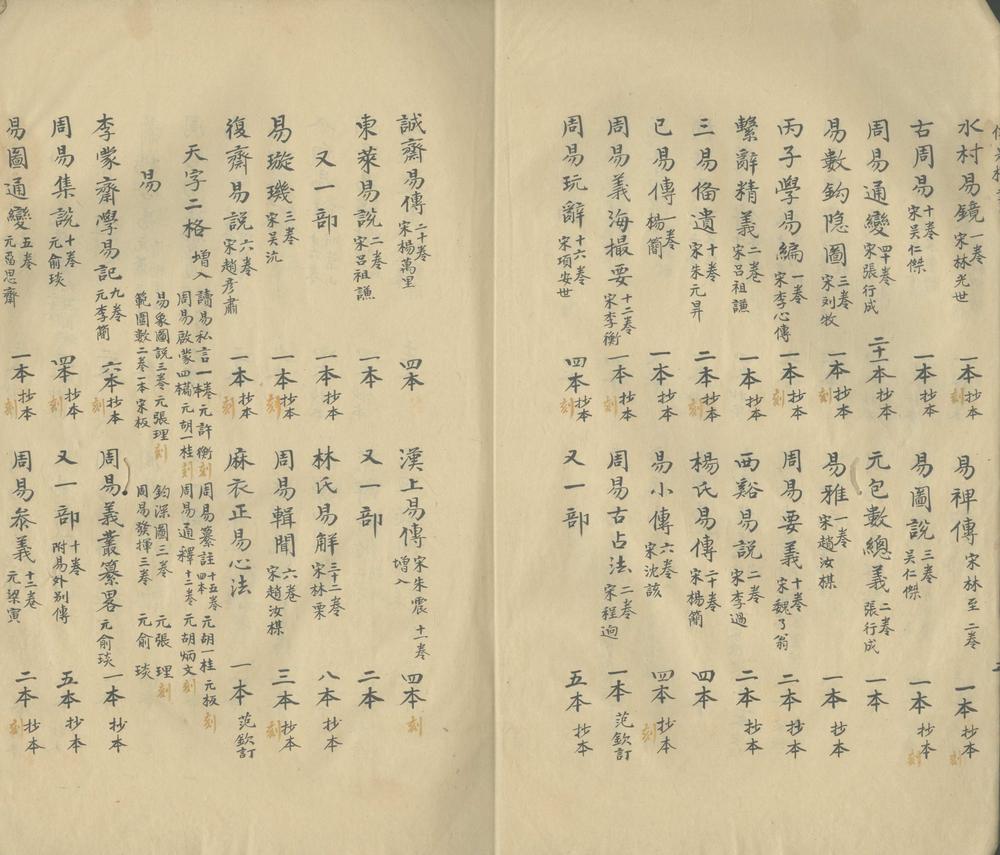 水村易鏡一卷宋林光世 一本抄本刻 易裨傳宋林至二卷 一本抄本刻
古周易十卷宋吴仁傑 一本抄本 易圖説三卷吴仁傑 一本抄本刻
周易通變四十卷宋張行成 二十一本抄本 元包數總義二卷張行成 一本
易數鈎隐圖三卷宋刘牧 一本抄本刻 易雅一卷宋趙汝楳 一本抄本
丙子學易編一卷宋李心傳 一本抄本刻 周易要義十卷宋魏了翁 二本抄本
繫辭精義二卷宋吕祖謙 一本抄本 西谿易説二卷宋李過 二本抄本
三易俻遺十卷宋朱元昇 二本抄本刻 楊氏易傳二十卷宋楊簡 四本
已易傳一卷楊簡 一本抄本 易小傳六卷宋沈該 四本抄本刻
周易義海撮要十二卷宋李衡 一本抄本刻 周易古占法二卷宋程迥 一本范欽訂
周易玩辭十六卷宋項安世 四本抄本刻 又一部 五本抄本
誠齋易傳二十卷宋楊萬里 四本 漢上易傳宋朱震十一卷增入 四本刻
東萊易説二卷宋吕祖謙 一本 又一部 二本
又一部 一本抄本 林氏易解三十二卷宋林栗 八本抄本
易璇璣三卷宋吴沆 一本抄本刻 周易輯聞六卷宋趙汝楳 三本抄本刻
復齋易説六卷宋趙彦肅 一本抄本刻 麻衣正易心法 一本范欽訂
天字二格增入 讀易私言一卷一本元許衡刻 周易纂註十五卷四本元胡一桂元板刻
周易啟蒙四檇元胡一桂刻 周易通釋十二卷元胡炳文刻
易 易象圖説三卷元張理刻 鈎深圖三卷元張理刻
範圖數二卷一本宋板 周易發揮三卷元俞琰
李蒙齋學易記九卷元李簡 六本抄本刻 周易義叢纂畧元俞琰 一本抄本
周易集説十卷元俞琰 四本抄本刻 又一部十卷附易外别傳 五本抄本
易圖通變五卷元雷思齋 一本抄本刻 周易叅義十二卷元梁寅 二本抄本刻